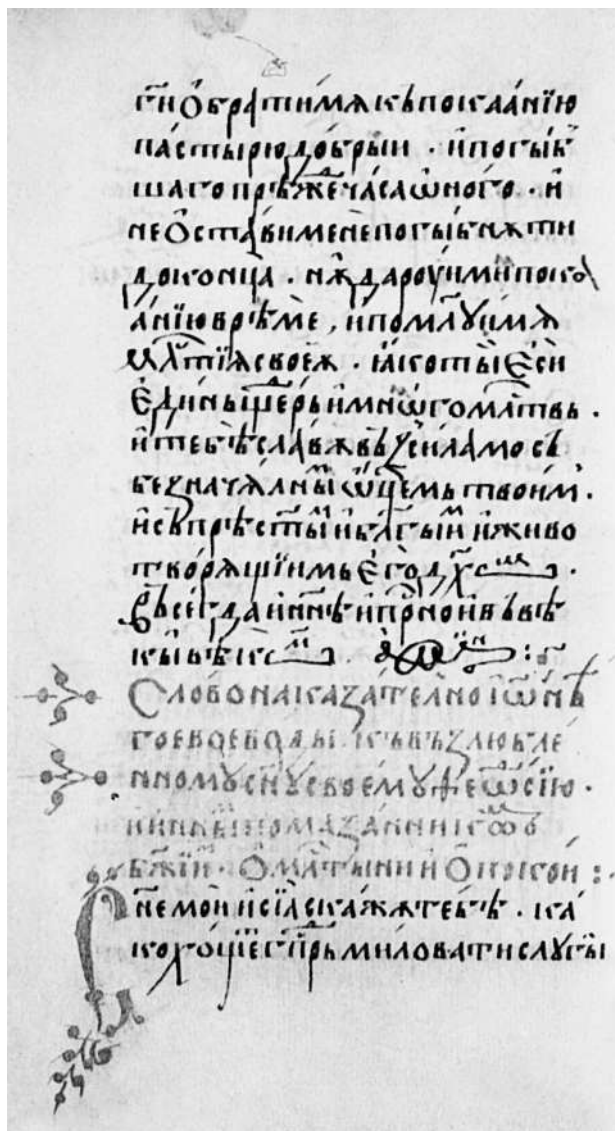 ги обрати мѧ къ покаанїю
пастырю добрыи · и погыб
шаго прѣжⷣе часа ѡного · и
не остави мене погыбнѫти
до конца · нѫ дароуи ми пока
анїю врѣме, и помлⷭ҇ꙋи мѧ
млⷭ҇тїѧ своеѫ · ꙗко ты еси
единь щедрь и мнѡгомлⷭ҇твь ·
и тебѣ славѫ въꙁсилаемо съ
беꙁначѧлныⷨ ѿцемь твоимⷨ ·
и съ прѣст҃ыⷨ и бл҃гыиⷨ и живо
творѧщїимь его дх҃омь ·
въсегда и нн҃ѣ и прⷭ҇но и въ вѣ
кы вѣкѡⷨ · аминь :
Слово накаꙁателно Іѡ нѣ
гое воеводы · къ въꙁлюбле
нномꙋ сн҃ꙋ своемꙋ ѳеѡⷣсїю ·
и инѣⷨ помаꙁанникѡⷨ
бж҃їиⷨ · О млⷭ҇тыни и о покои :
Сн҃е мои и сїа скажѫ тебѣ · ка
ко хощеⷮ г҃пⷣрь миловати слꙋгы